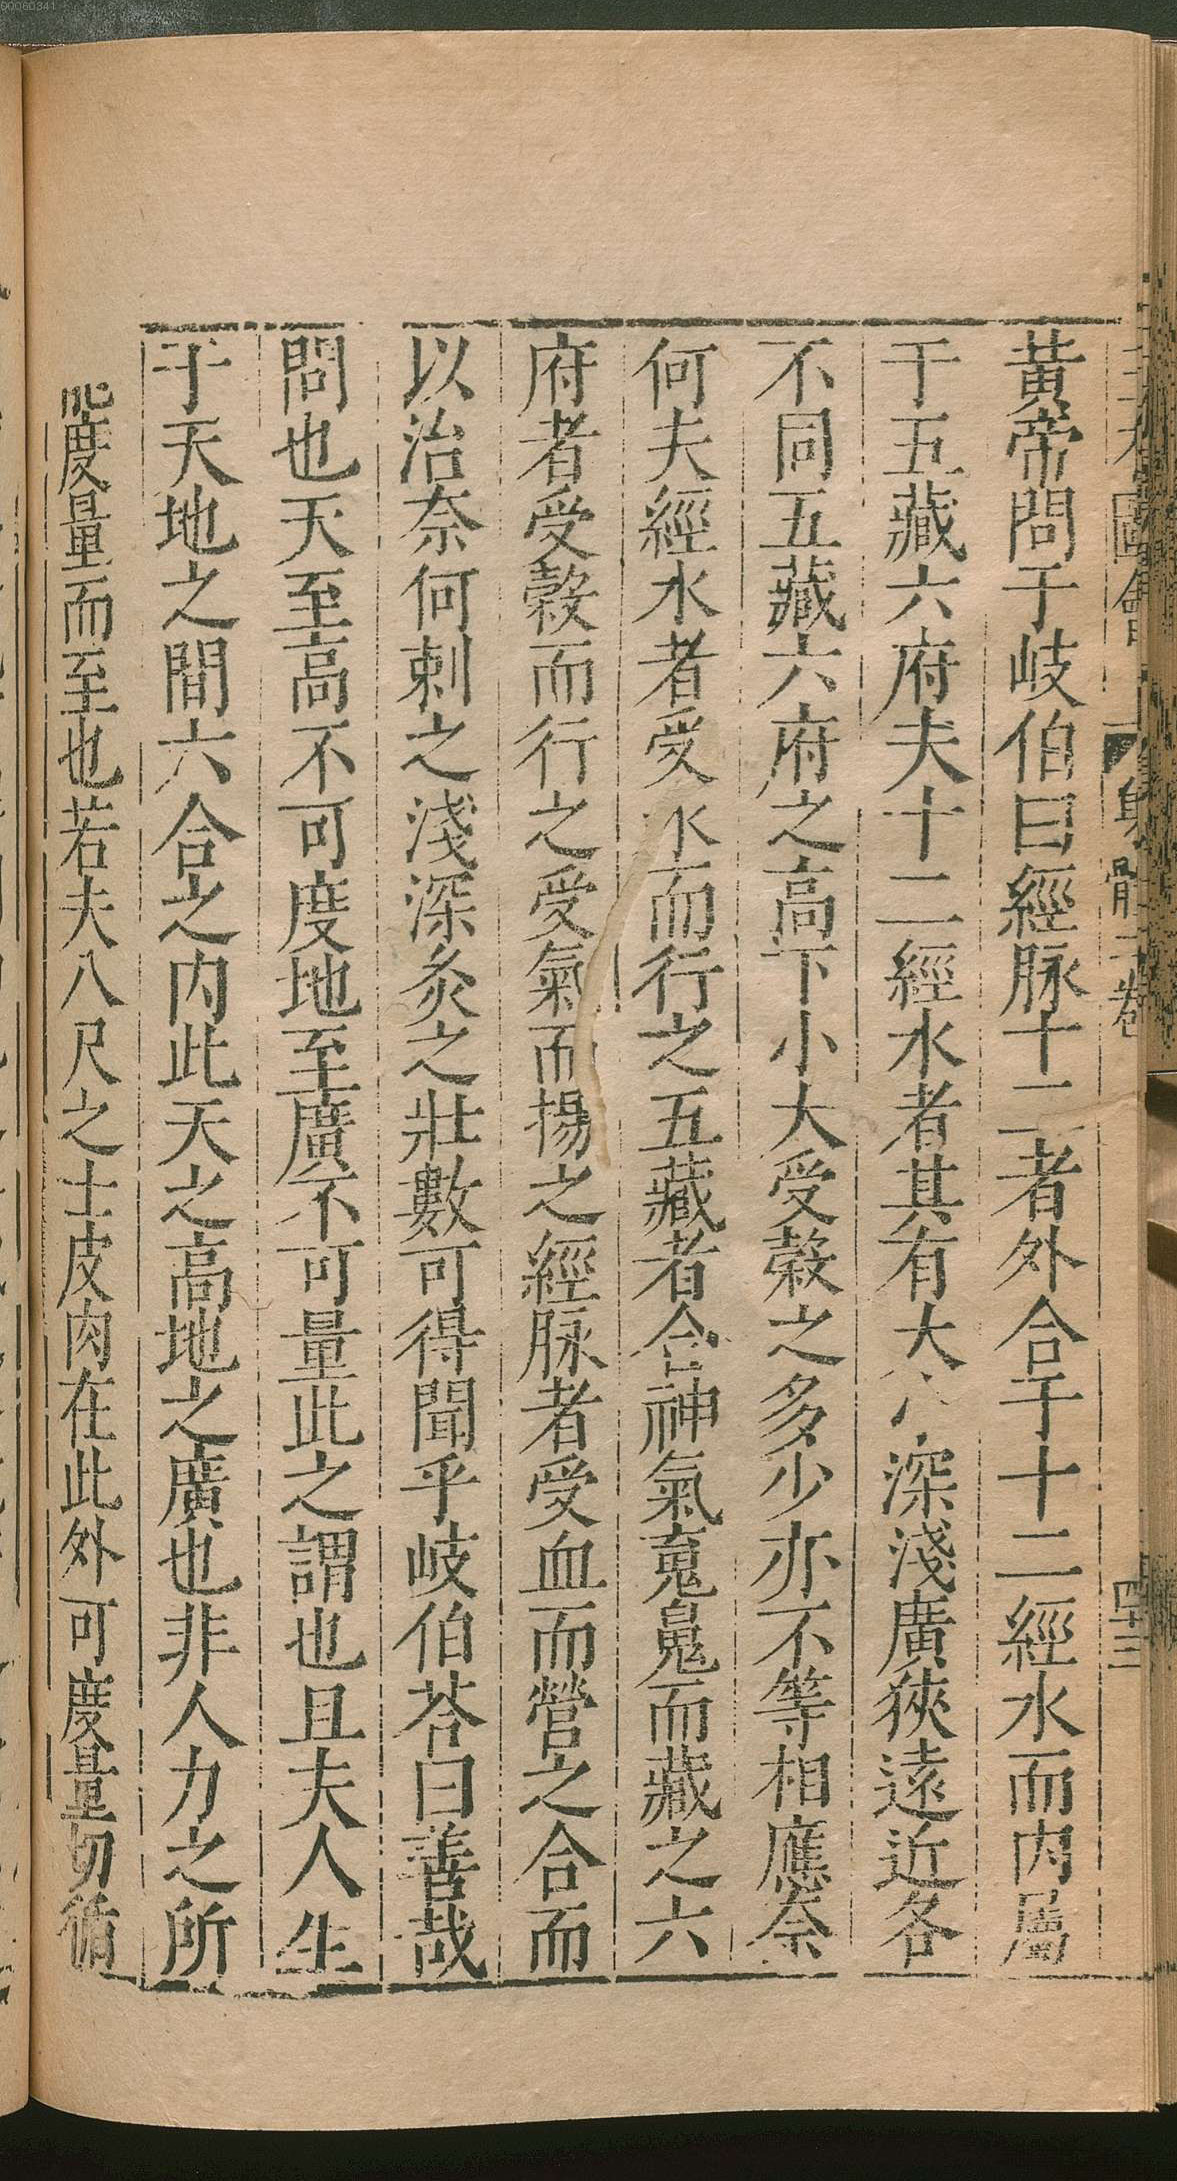 三才圖會 身體二卷 四十三
黃帝問于岐伯曰經脉十二者外合于十二經水而内屬
于五藏六府夫十二經水者其有大 深淺廣狹遠近各
不同五藏六府之高下小大受穀之多少亦不等相應奈
何夫經水者受水而行之五藏者合神氣䰟䰟而藏之六
府者受穀而行之受氣而揚之經脉者受血而營之合而
以治奈何刺之淺深灸之壯數可得聞乎岐伯荅曰善哉
問也天至高不可度地至廣不可量此之謂也且夫人生
于天地之間六合之内此天之高地之廣也非人力之所
能度量而至也若夫八尺之士皮肉在此外可度量切循
00060341